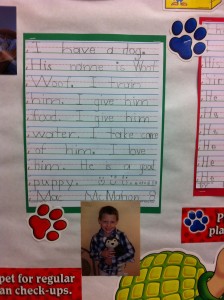 I have a dog.
His name is Woof
Woof. I train
him. I give him
food. I give him
water. I take care
of him. I love
him. He is a good
puppy.
Max McMahon
pet for regular
an check-ups.
P
pla
He
He
He
He